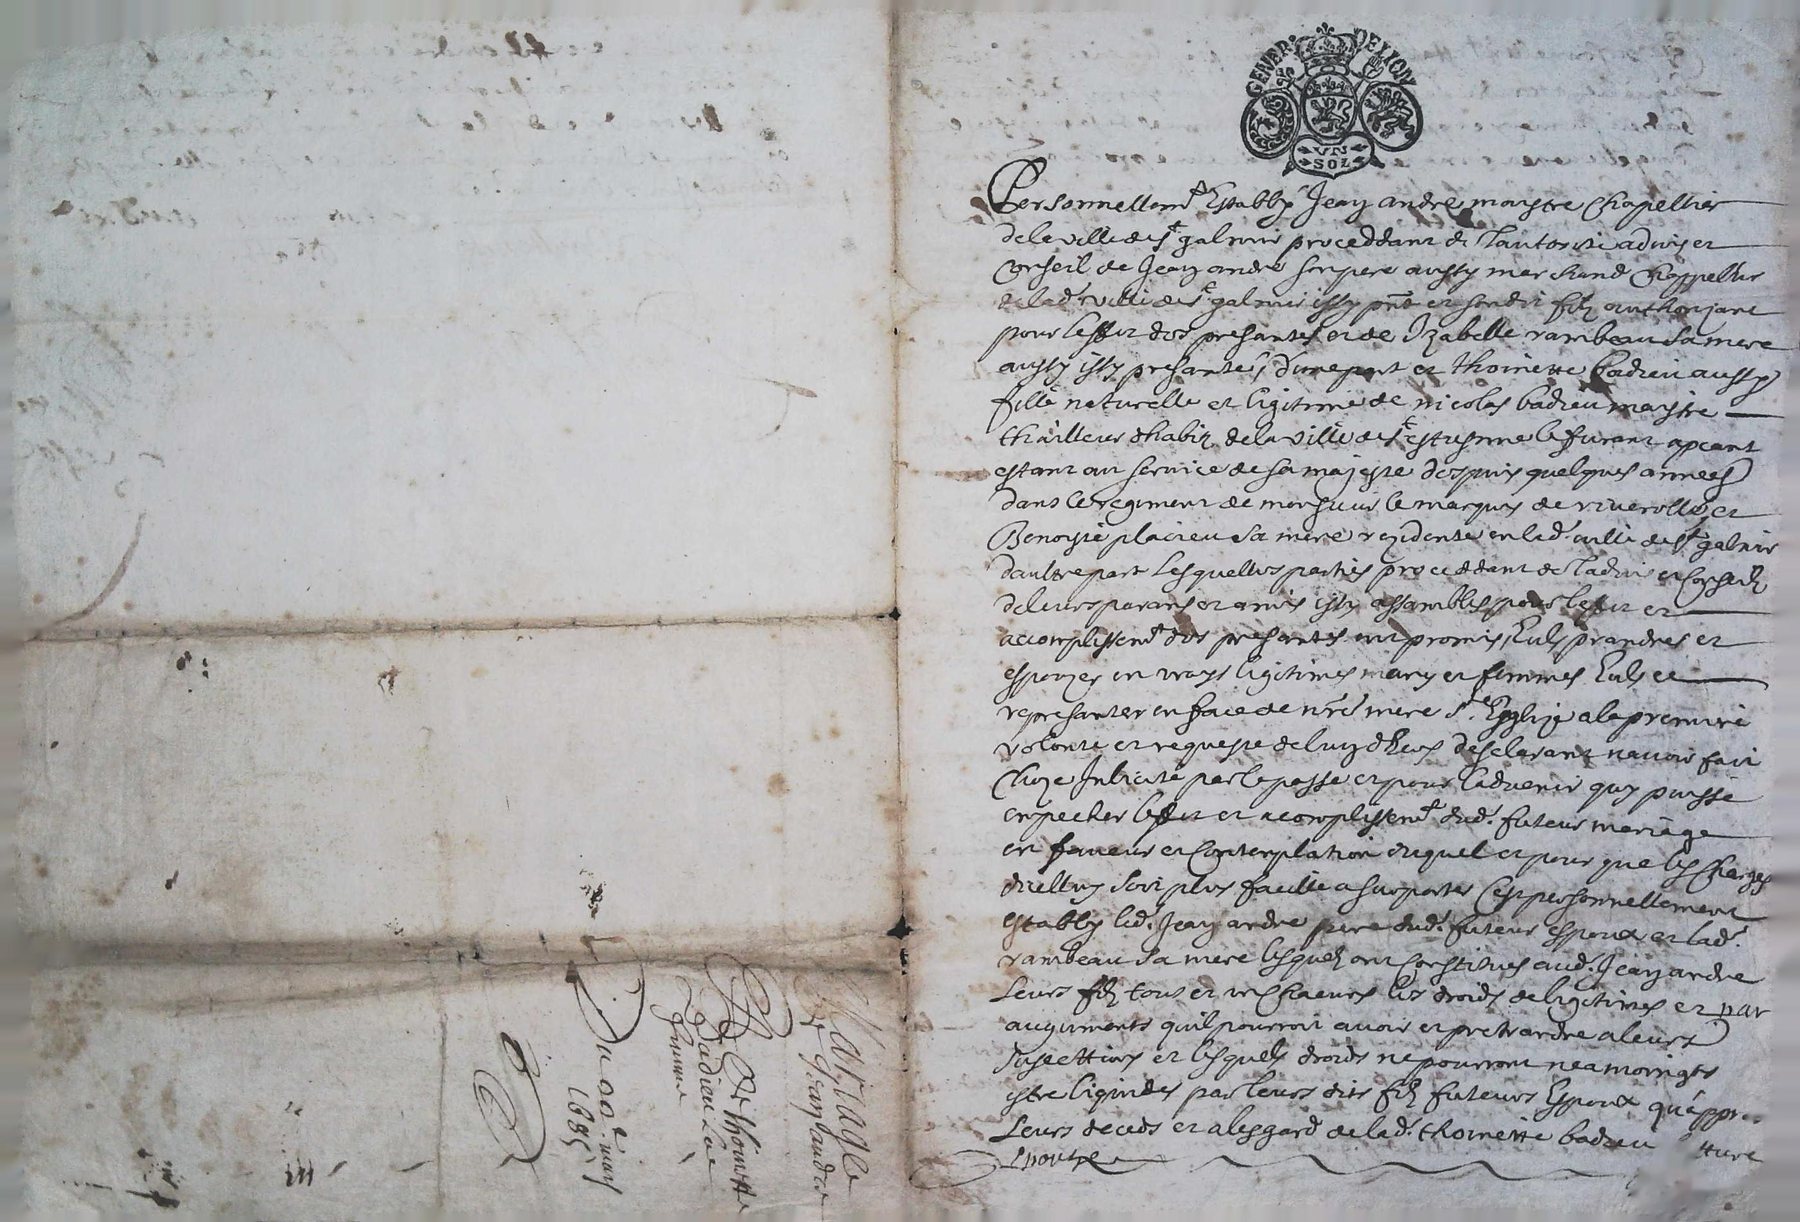 Mariage
de Jean andre
Et de Thoinette
Badieu sa
femme
Du 20e may
1685
GENER DE LION
VN
SOL
Personnellemt Estably Jean andre maystre Chapellier
de la ville de St galmier proceddant de lautorité advis et
Conseil de Jean andre son pere aussy marchand Chappellier
de lad. ville de St galmier issy pnt et sondit filz authorizant
pour leffet des presantes et de Izabelle rambeau sa mere
aussy issy presante, dune part et thoinette badieu aussy
fille naturelle et ligitime de nicolas badieu maystre
thailleur dhabitz de la ville de St estienne le furant
estant au service de sa majeste despuis quelques annees
dans le regiment de monsieur le marquis de riverolles, et
Benoiste placieu sa mere rezidente en lad. ville de St galmier
daultre part Lesquelles parties proceddant de ladvis et Conseil
de leurs parans et amis issy assambles pour leffet et
accomplissemt des presantes ont promis Eulx prandres et
espouzer en vrays ligitimes mary et femmes Eulx ce
represanter en face de nre mere Ste Esglize a la premiere
volonte et requeste de luy dheus desclarant navoir fait
Choze Inlicite par le passe et pour ladvenir quy puisse
enpecher leffet et acomplissemt dud. futeur mariage
en faveur et Contenplation duquel et pour que les Charges
dicelluy soit plus facille a suporter Cest personnellement
estably led. Jean andre pere dud. futeur espoux et lad.
rambeau sa mere lesquels ont Constitues aud. Jean andre
Leurs filz tous et un Chacuns les droids de ligitimes et par
augments quil pourroit avoir et pretandre a leurs
et lesquels droids ne pourront neamoingts
estre liquides par leurs dits filz futeurs Espoux qu'appres
Leurs deceds et a lesgard de lad. thoinette badieu
future
Espouze